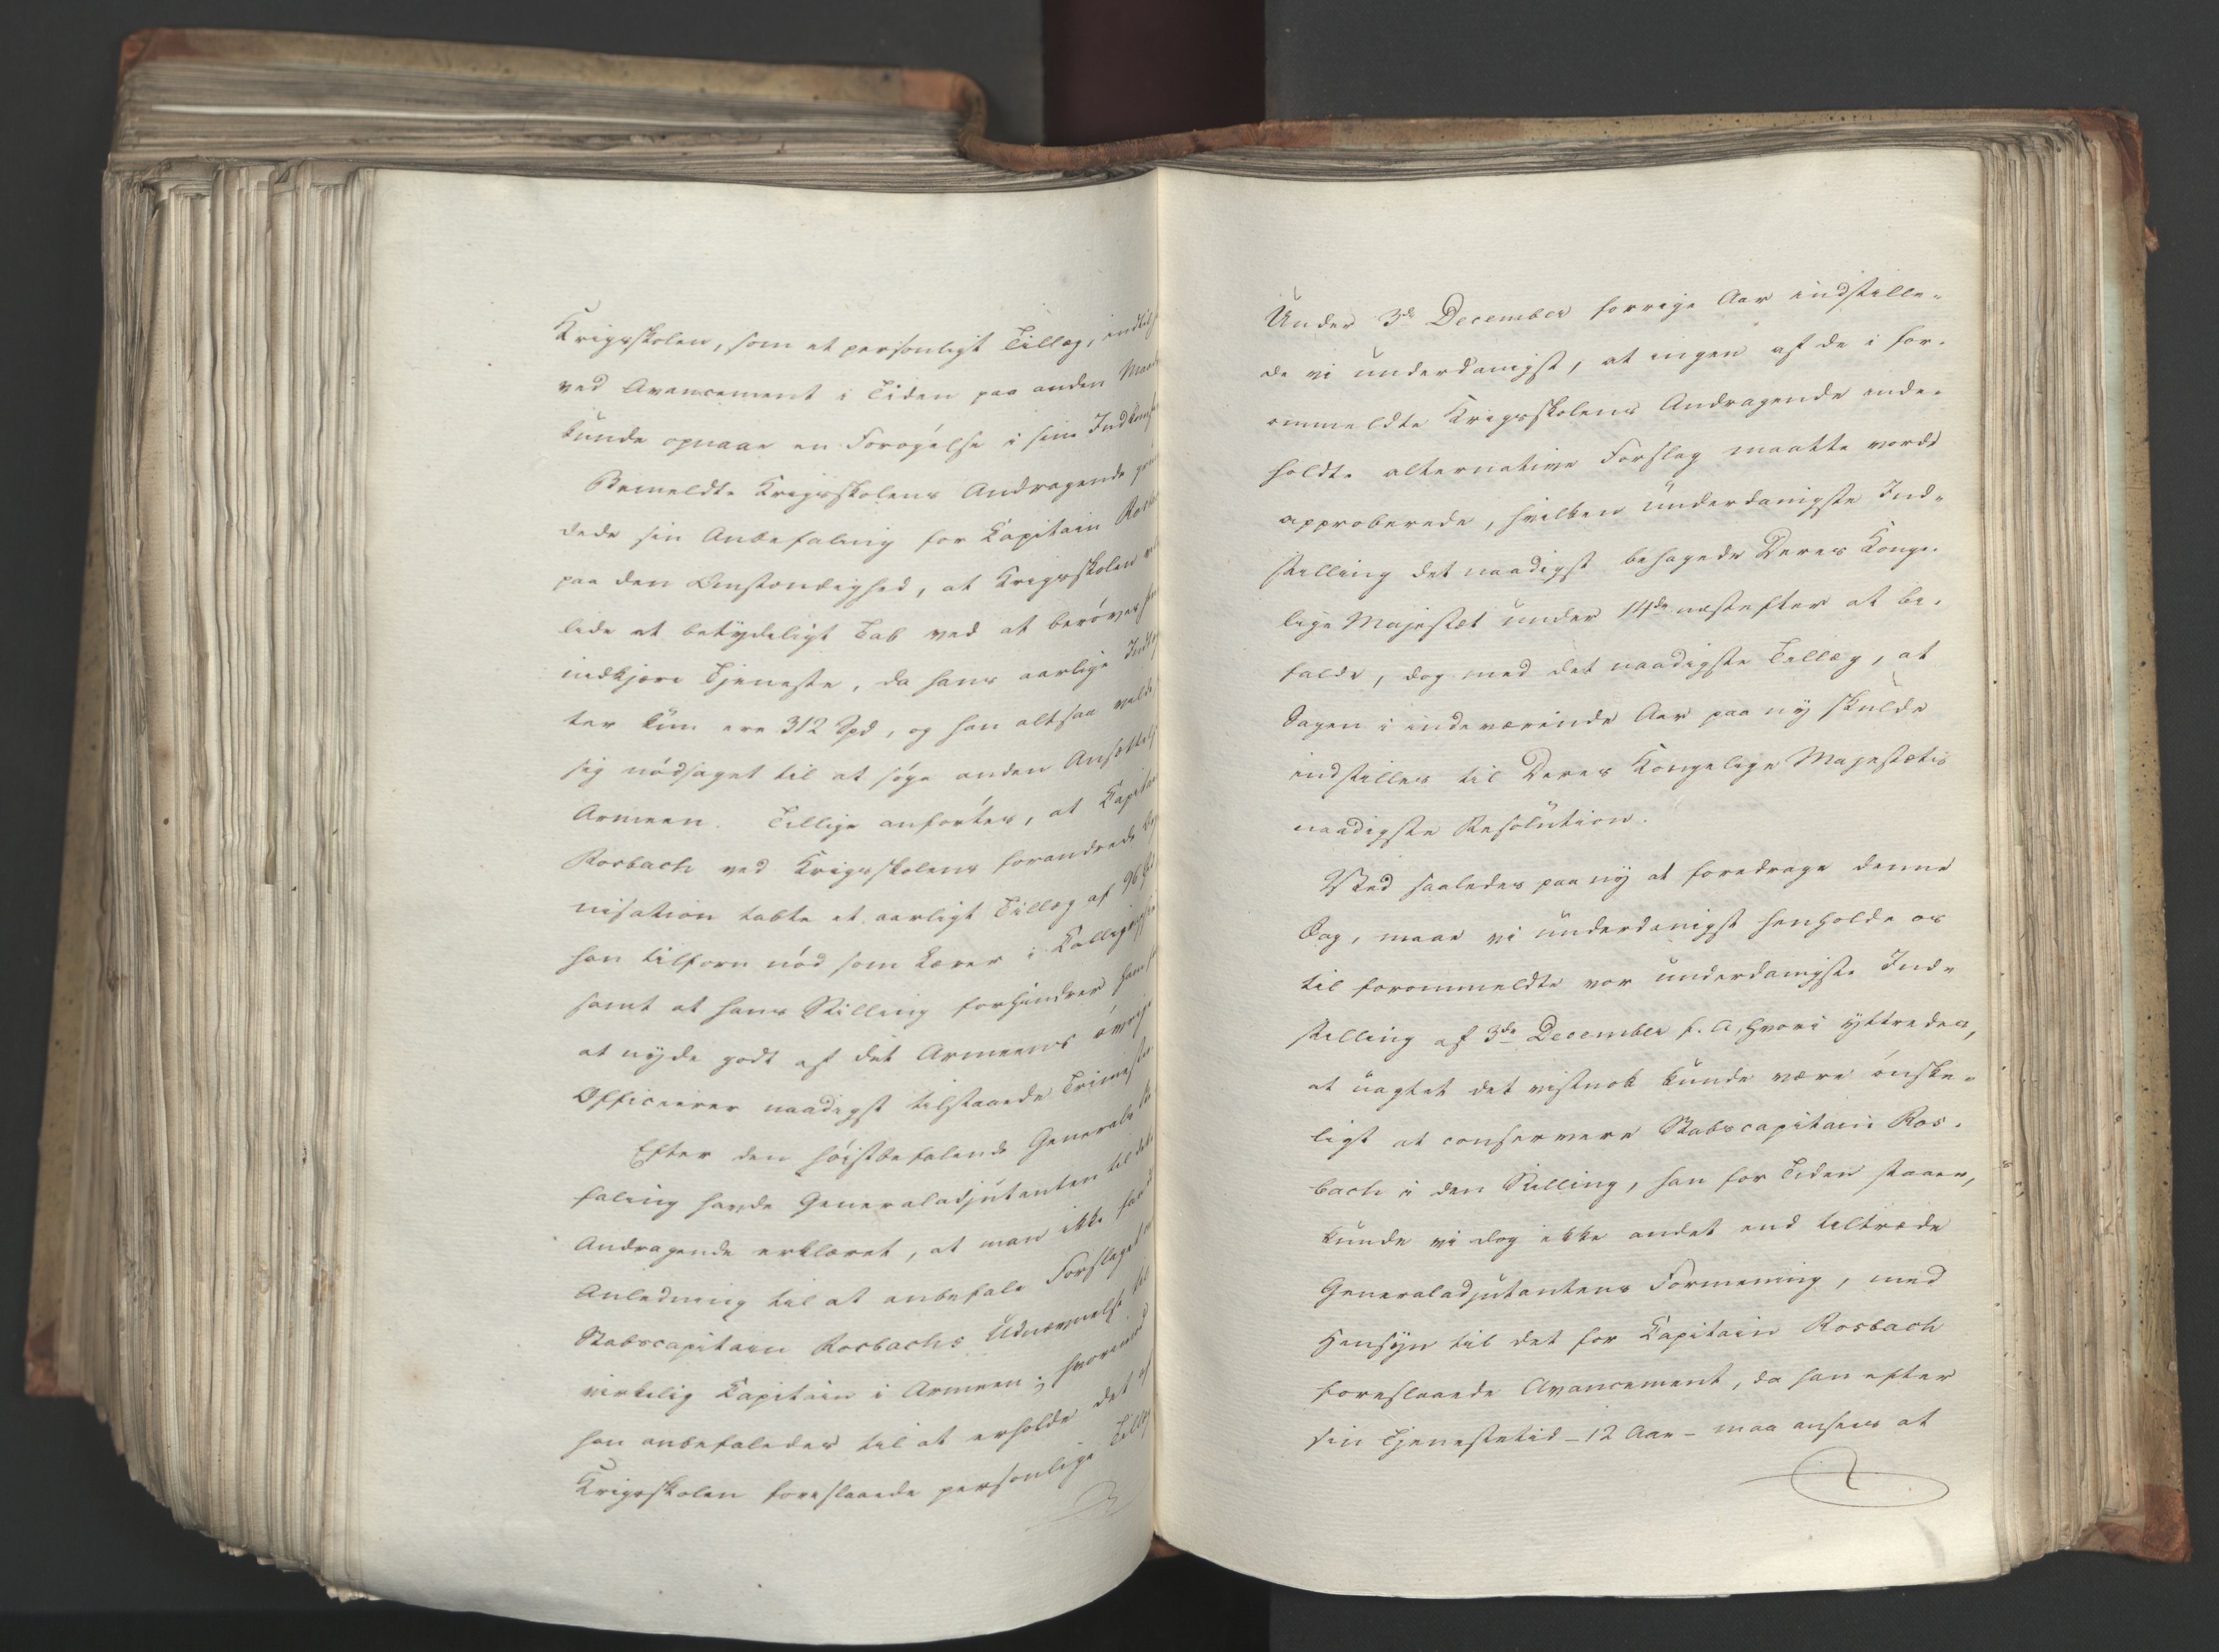 Krigsskolen, som et personligt Tillæg, indtil
ved Avancement i Tiden paa anden Maa
kunde opnaae en Forøgelse i sine Indkomst
Bemeldte Krigsskolens Andragende grun
dede sin Anbefaling for Capitain Ros
paa den Omstændighed, at Krigsskolen
lide et betydeligt Tab ved at berøves
indkjøre Tjeneste, da hans aarlige Indtæg
ter kun ere 312 Spd, og han altsaa
sig nødsaget til at søge anden Ansættelse
Armeen. Tillige anførtes, at Capitain
Rosbach ved Krigsskolens forandrede Orga
nisation tabte et aarligt Tillæg af 96
han tilforn nød som Lærer i
samt at hans Stilling forhindrer ham
at nyde godt af det Armeens øvrige
Officierer naadigst tilstaaede
Efter den høistbefalende Generals
faling havde Generaladjutanten til
Andragende erklæret, at man ikke
Anledning til at anbefale Forslaget
Stabscapitain Rosbachs Udnævnelse til
virkelig Capitain i Armeen; hvorimod
han anbefaledes til at erholde det af
Krigsskolen foreslaaede personlige Tillæg
Under 3de December forrige Aar indstille-
de vi underdanigst, at ingen af de i for-
ommeldte Krigsskolens Andragende inde-
holdte alternative Forslag maatte vorde
approberede, hvilken underdanigste Ind-
stilling det naadigst behagede Deres Konge-
lige Majestæt under 14de næstefter at bi-
falde, dog med det naadigste Tillæg, at
Sagen i indeværende Aar paa ny skulde
indstilles til Deres Kongelige Majestæts
naadigste Resolution.
Ved saaledes paa ny at foredrage denne
Sag, maae vi underdanigst henholde os
til forommeldte vor underdanigste Ind-
stilling af 3de December f. A, hvori yttredes,
at uagtet det vistnok kunde være ønske-
ligt at conservere Stabscapitain Ros-
bach i den Stilling, han for Tiden staaer,
kunde vi dog ikke andet end tiltræde
Generaladjutantens Formening, med
Hensyn til det for Capitain Rosbach
foreslaaede Avancement, da han efter
sin Tjenestetid - 12 Aar - maa ansees at